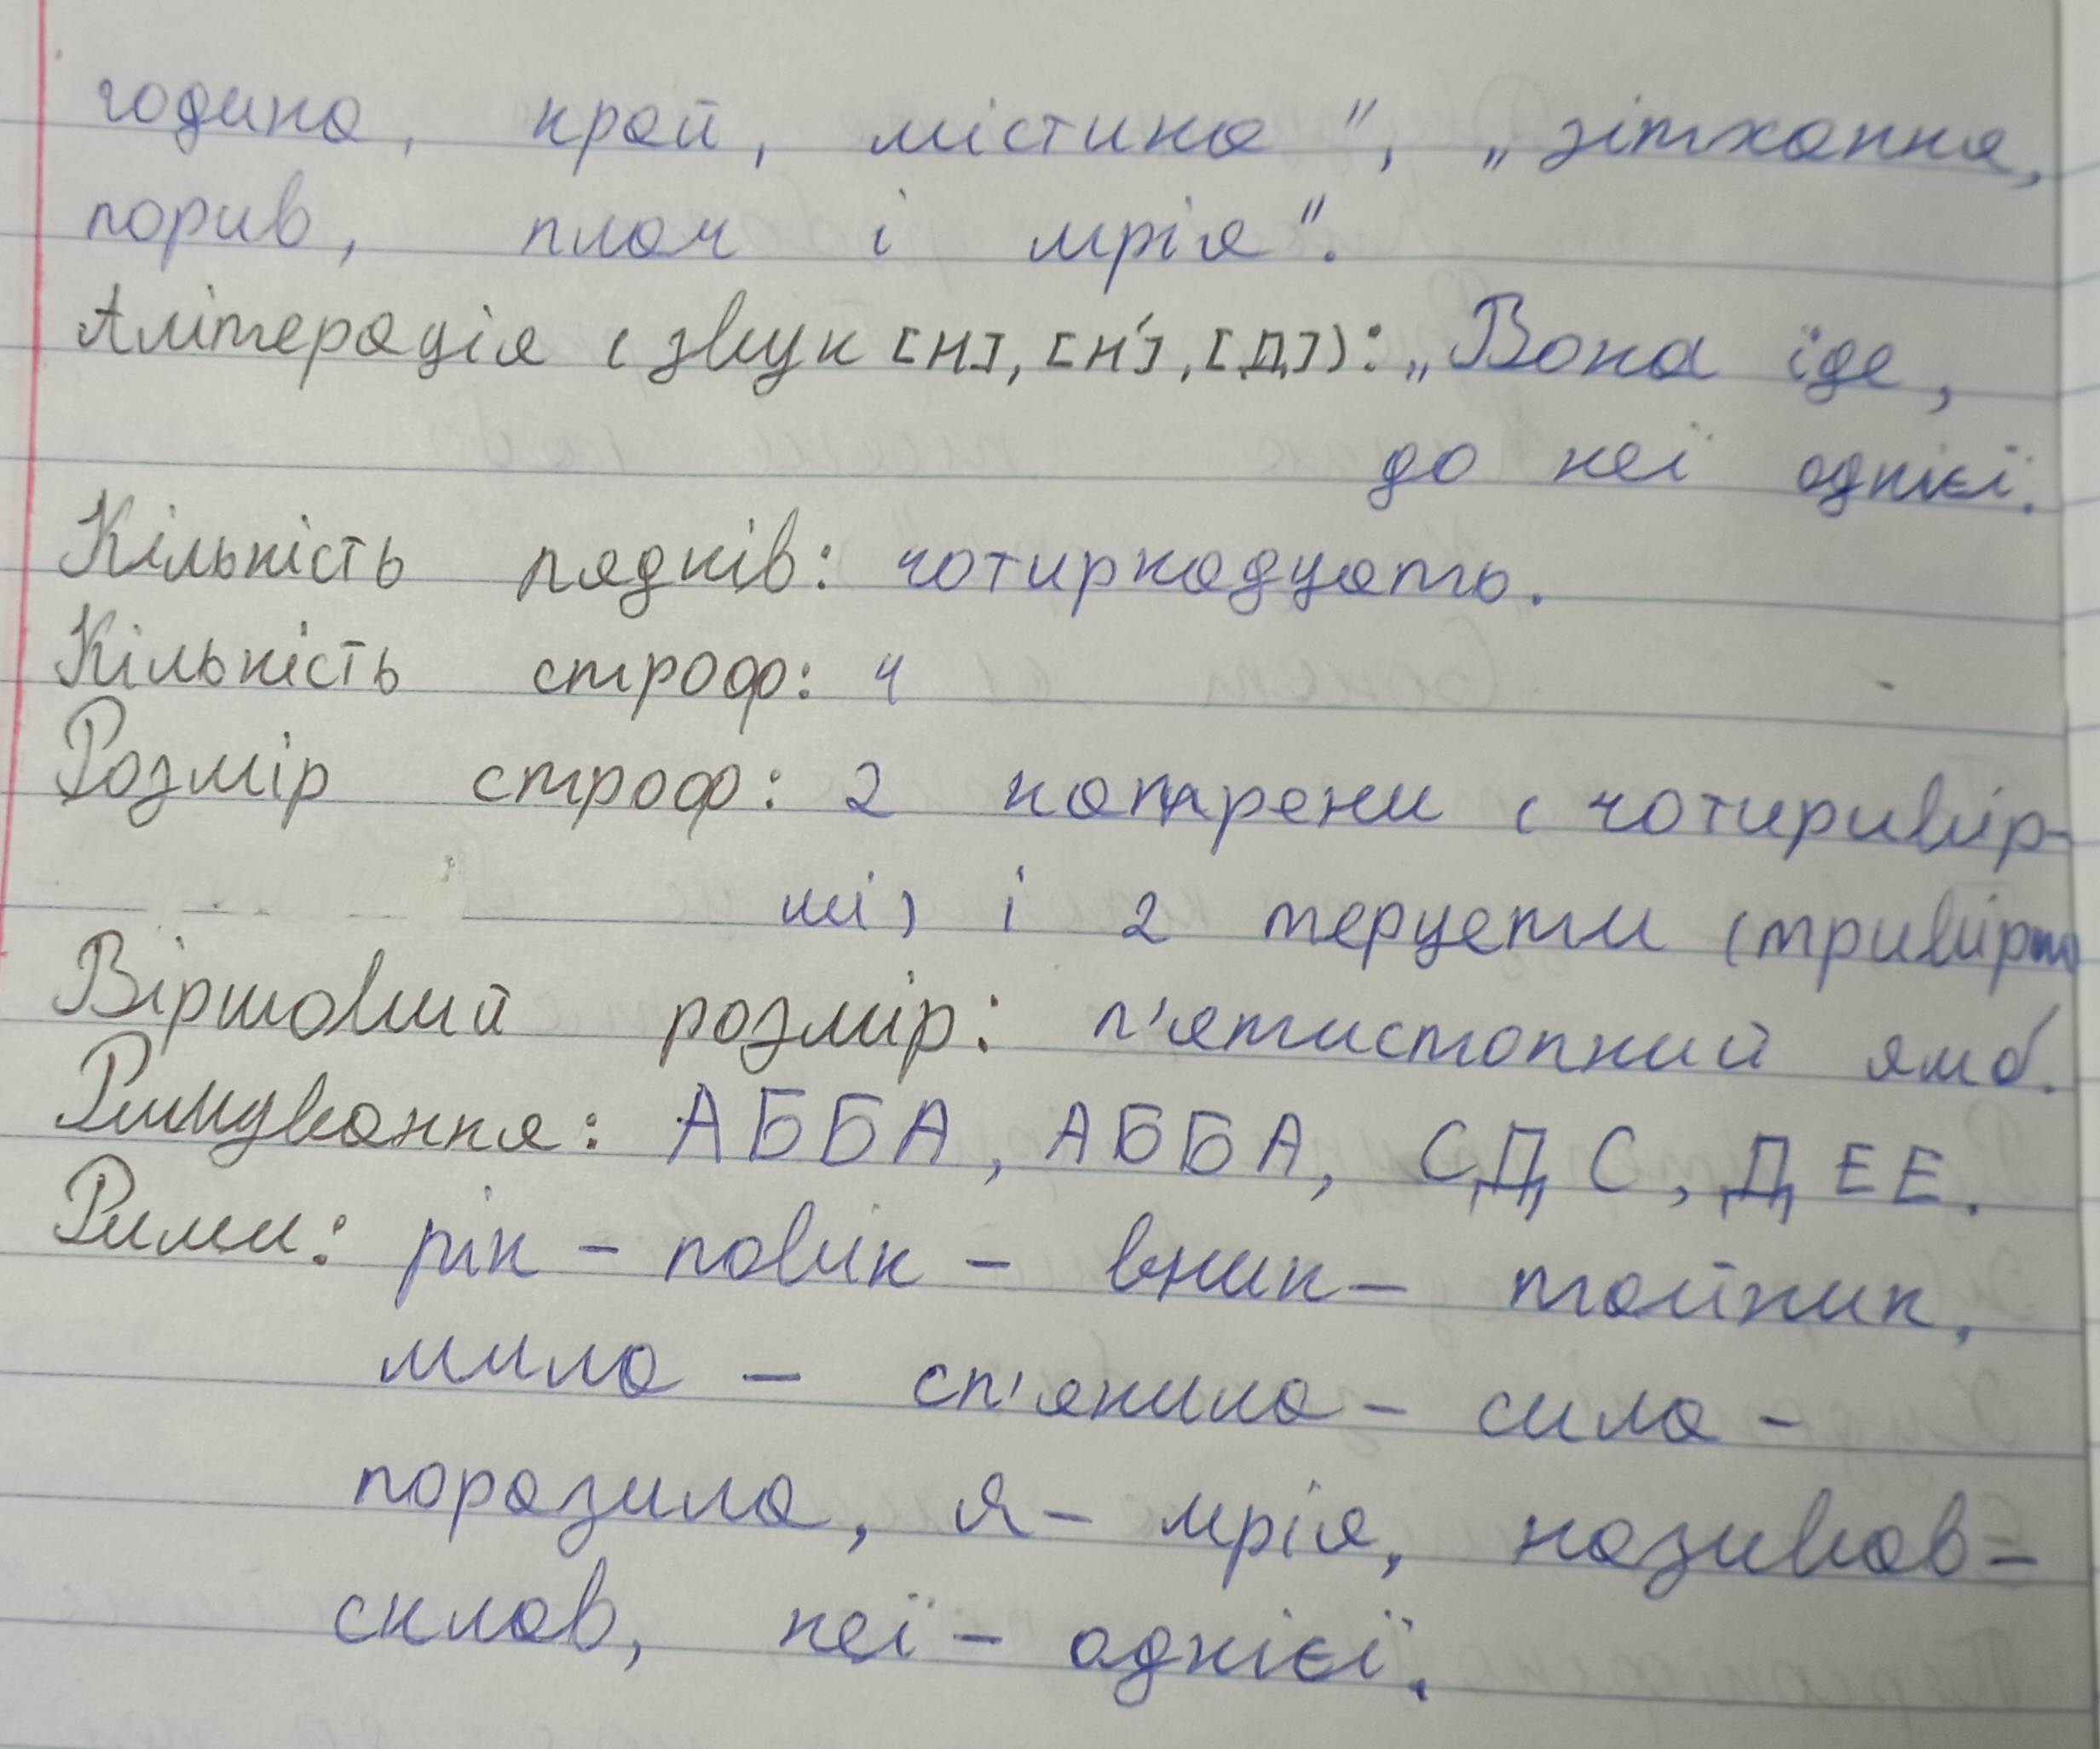 година, край, містина", „зітхання,
порив, плач і мрія".
Алітерація (звук [н], [н'], [д]): „Вона їде,
до неї однієї.
Кількість рядків: чотирнадцять.
Кількість строф: 4
Розмір строф: 2 катрени (чотиривір-
ші) і 2 терцети (тривірш
Віршовий розмір: п'ятистопний ямб.
Римування: АББА, АББА, СДС, ДЕЕ.
Рими: рік – повік – вник – тайник,
мила – сп'янила – сила –
поразила, я – мрія, називав –
склав, неї – однієї.